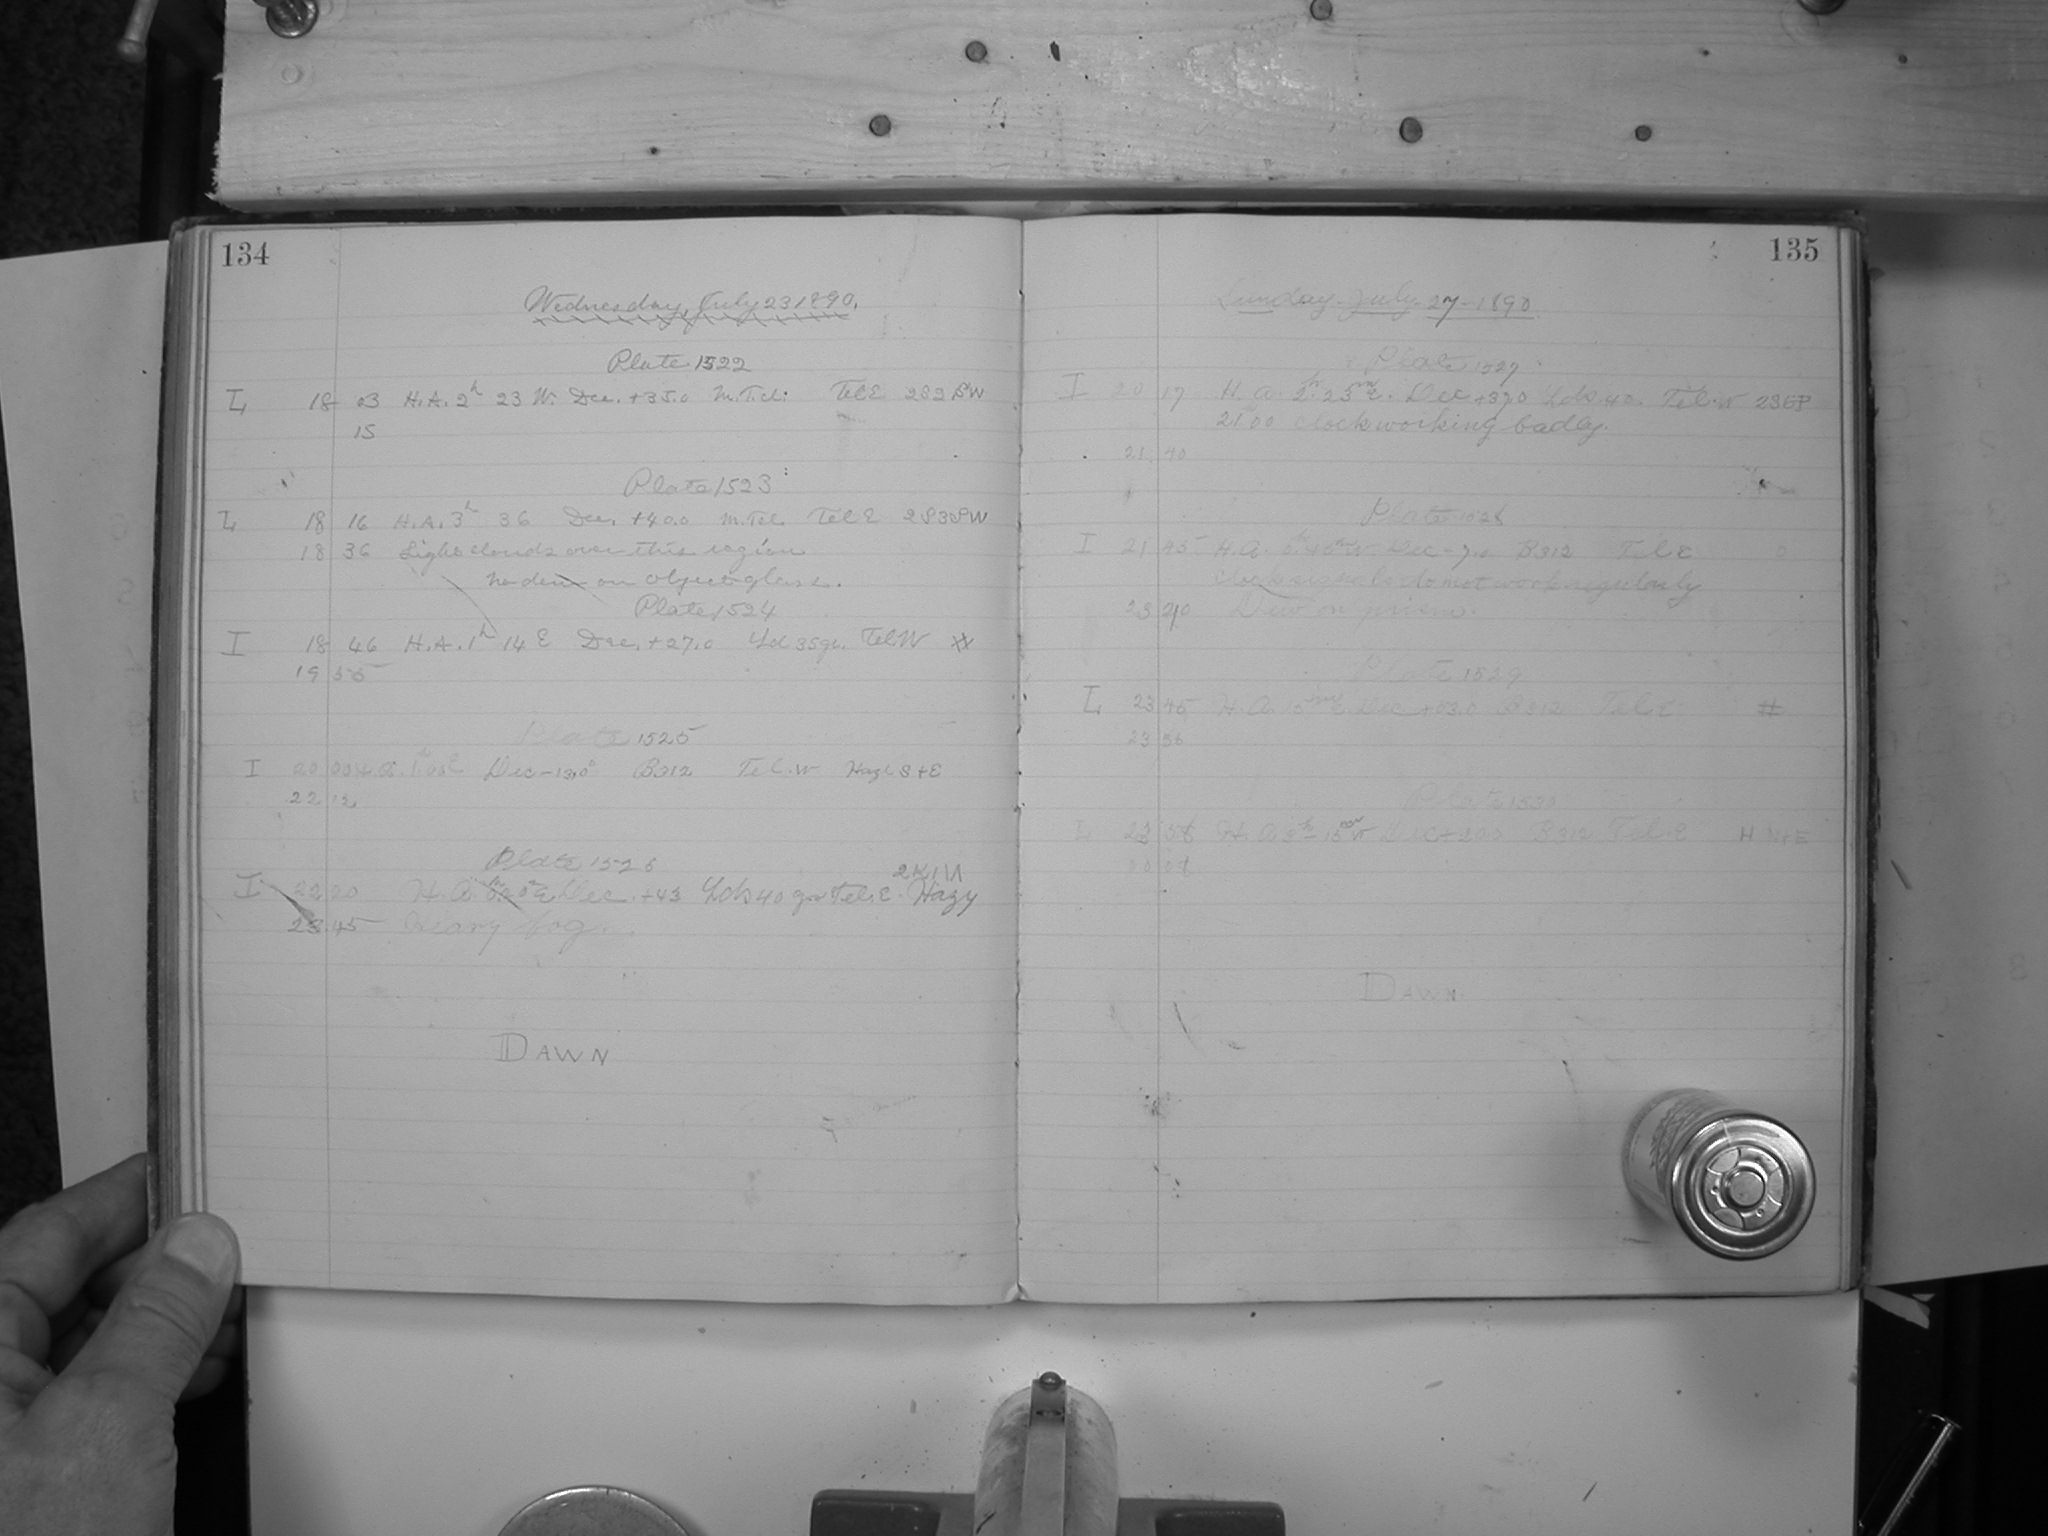 134
Wednesday, July 23 1890.
Plate 1522
I, 18 03 H.A. 2h 23 W. Dec. +35.0 M.Tel. Tel E
15
Plate 1523
I, 18 16 H.A. 3h 36 Dec. +40.0 M.Tel. Tel E
18 36 Light clouds over this region
no dew on object glass.
Plate 1524
I 18 46 H.A. 1h 14 E Dec. +27.0 35 gr. Tel W
19 55
Plate 1525
I 20 00 H.A. Dec -13.0° B312 Tel. W Haze S+E
22 12
Plate 1526
I 22 20 H.A. Dec. +43 40 gr Tel. E. Hazy
23 45 Heavy fog.
DAWN
135
Sunday July 27 - 1890
Plate 1527
I 20 17 H.A. 2h 25m E. Dec +37.0 40. Tel. W
21 00 clock working badly.
21 40
Plate 1528
I 21 45 H.A. Dec -7.0 B312 Tel. E
clock signals do not work regularly
23 20 Dew on prism.
Plate 1529
I, 23 45 H.A. Dec +03.0 B312 Tel. E #
23 56
Plate 1530
23 58 H.A. 3h 15m W Dec +20.0 B312 Tel. E H N+E
DAWN